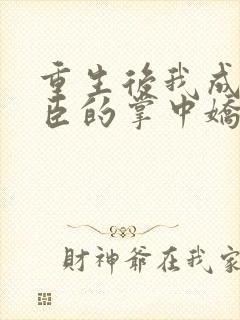 重生後我成
臣的掌中嬌
財神爺在我家